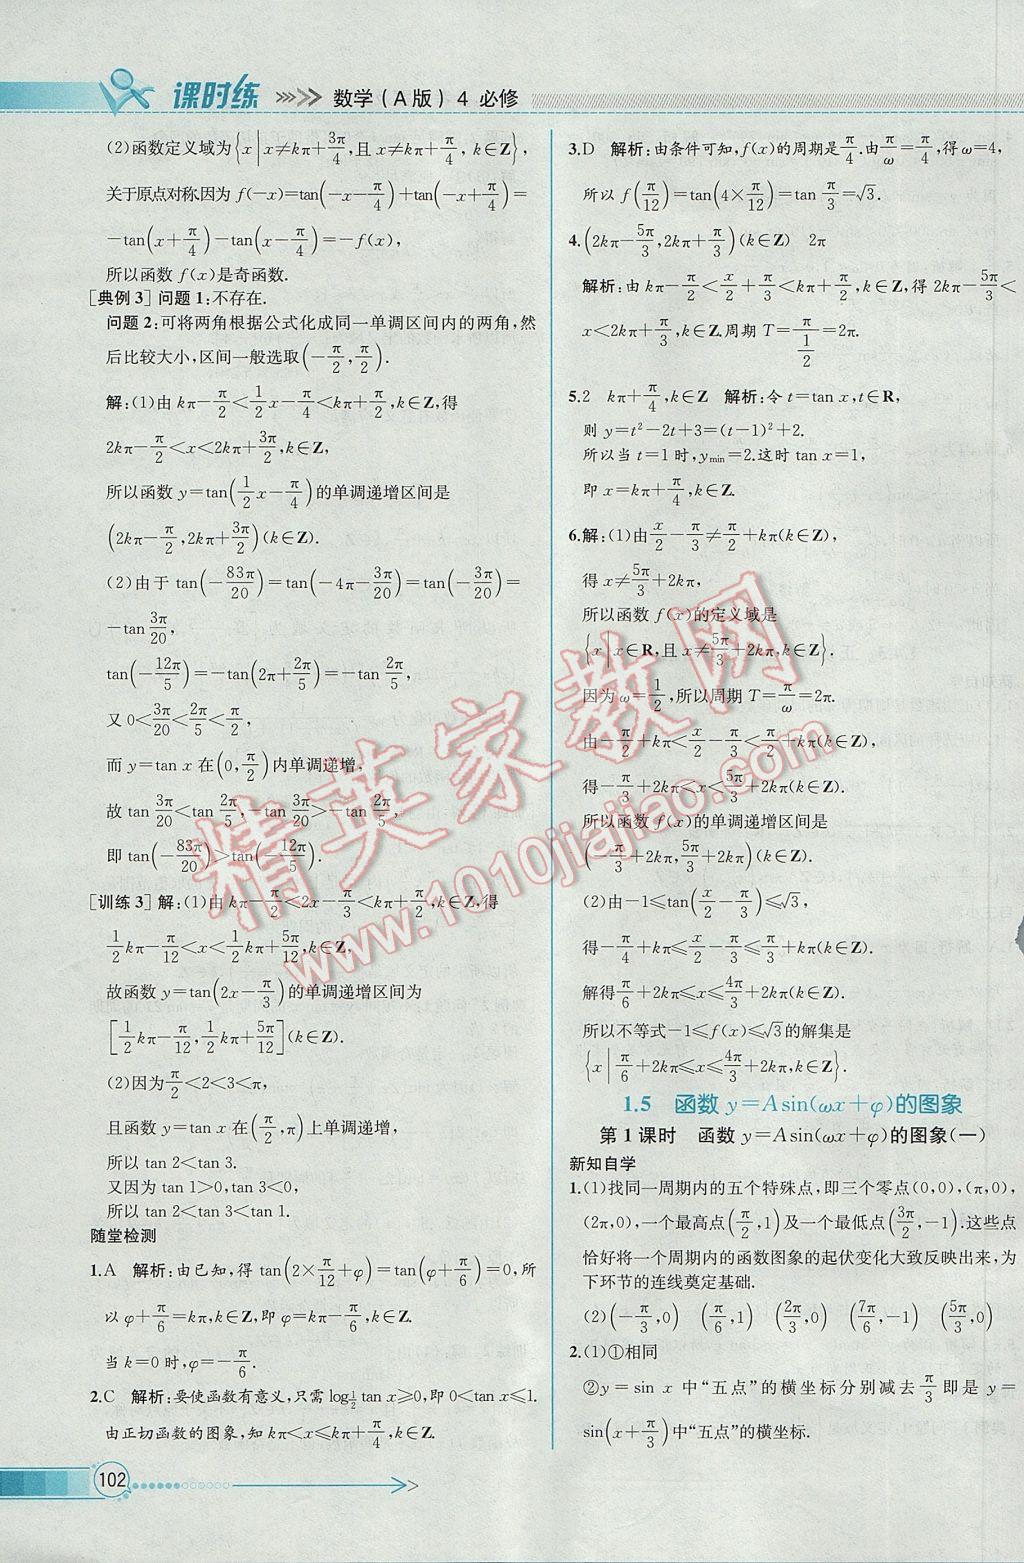 课时练 数学(A版) 4 必修
(2)函数定义域为{x|x≠kπ+3π/4,且x≠kπ+π/4,k∈Z},
关于原点对称.因为f(-x)=tan(-x-π/4)+tan(-x+π/4)=
-tan(x+π/4)-tan(x-π/4)=-f(x),
所以函数f(x)是奇函数.
[典例3]问题1:不存在.
问题2:可将两角根据公式化成同一单调区间内的两角,然
后比较大小,区间一般选取(-π/2,π/2).
解:(1)由kπ-π/2<1/2x-π/4<kπ+π/2,k∈Z,得
2kπ-π/2<x<2kπ+3π/2,k∈Z,
所以函数y=tan(1/2x-π/4)的单调递增区间是
(2kπ-π/2,2kπ+3π/2)(k∈Z).
(2)由于tan(-83π/20)=tan(-4π-3π/20)=tan(-3π/20)=
-tan3π/20,
tan(-12π/5)=-tan(2π+2π/5)=-tan2π/5,
又0<3π/20<2π/5<π/2,
而y=tan x在(0,π/2)内单调递增,
故tan3π/20<tan2π/5,-tan3π/20>-tan2π/5,
即tan(-83π/20)>tan(-12π/5).
[训练3]解:(1)由kπ-π/2<2x-π/3<kπ+π/2,k∈Z,得
1/2kπ-π/12<x<1/2kπ+5π/12,k∈Z,
故函数y=tan(2x-π/3)的单调递增区间为
[1/2kπ-π/12,1/2kπ+5π/12](k∈Z).
(2)因为π/2<2<3<π,
且函数y=tan x在(π/2,π)上单调递增,
所以tan 2<tan 3.
又因为tan 1>0,tan 3<0,
所以tan 2<tan 3<tan 1.
随堂检测
1.A 解析:由已知,得tan(2×π/12+φ)=tan(φ+π/6)=0,所
以φ+π/6=kπ,k∈Z,即φ=kπ-π/6,k∈Z.
当k=0时,φ=-π/6.
2.C 解析:要使函数有意义,只需log½tan x≥0,即0<tan x≤1.
由正切函数的图象,知kπ<x≤kπ+π/4,k∈Z.
3.D 解析:由条件可知,f(x)的周期是π/4.由π/ω=π/4,得ω=4,
所以f(π/12)=tan(4×π/12)=tanπ/3=√3.
4.(2kπ-5π/3,2kπ+π/3)(k∈Z) 2π
解析:由kπ-π/2<x/2+π/3<kπ+π/2,k∈Z,得2kπ-5π/3<
x<2kπ+π/3,k∈Z.周期T=π/(1/2)=2π.
5.2 kπ+π/4,k∈Z 解析:令t=tan x,t∈R,
则y=t²-2t+3=(t-1)²+2.
所以当t=1时,ymin=2.这时tan x=1,
即x=kπ+π/4,k∈Z.
6.解:(1)由x/2-π/3≠π/2+kπ(k∈Z),
得x≠5π/3+2kπ,
所以函数f(x)的定义域是
{x|x∈R,且x≠5π/3+2kπ,k∈Z}.
因为ω=1/2,所以周期T=π/ω=2π.
由-π/2+kπ<x/2-π/3<π/2+kπ(k∈Z),
得-π/3+2kπ<x<5π/3+2kπ(k∈Z).
所以函数f(x)的单调递增区间是
(-π/3+2kπ,5π/3+2kπ)(k∈Z).
(2)由-1≤tan(x/2-π/3)≤√3,
得-π/4+kπ≤x/2-π/3≤π/3+kπ(k∈Z).
解得π/6+2kπ≤x≤4π/3+2kπ(k∈Z).
所以不等式-1≤f(x)≤√3的解集是
{x|π/6+2kπ≤x≤4π/3+2kπ,k∈Z}.
1.5 函数y=Asin(ωx+φ)的图象
第1课时 函数y=Asin(ωx+φ)的图象(一)
新知自学
1.(1)找同一周期内的五个特殊点,即三个零点(0,0),(π,0),
(2π,0),一个最高点(π/2,1)及一个最低点(3π/2,-1).这些点
恰好将一个周期内的函数图象的起伏变化大致反映出来,为
下环节的连线奠定基础.
(2)(-π/3,0) (π/6,1) (2π/3,0) (7π/6,-1) (5π/3,0)
2.(1)①相同
②y=sin x中“五点”的横坐标分别减去π/3即是y=
sin(x+π/3)中“五点”的横坐标.
102
精英家教网
www.1010jiajiao.com